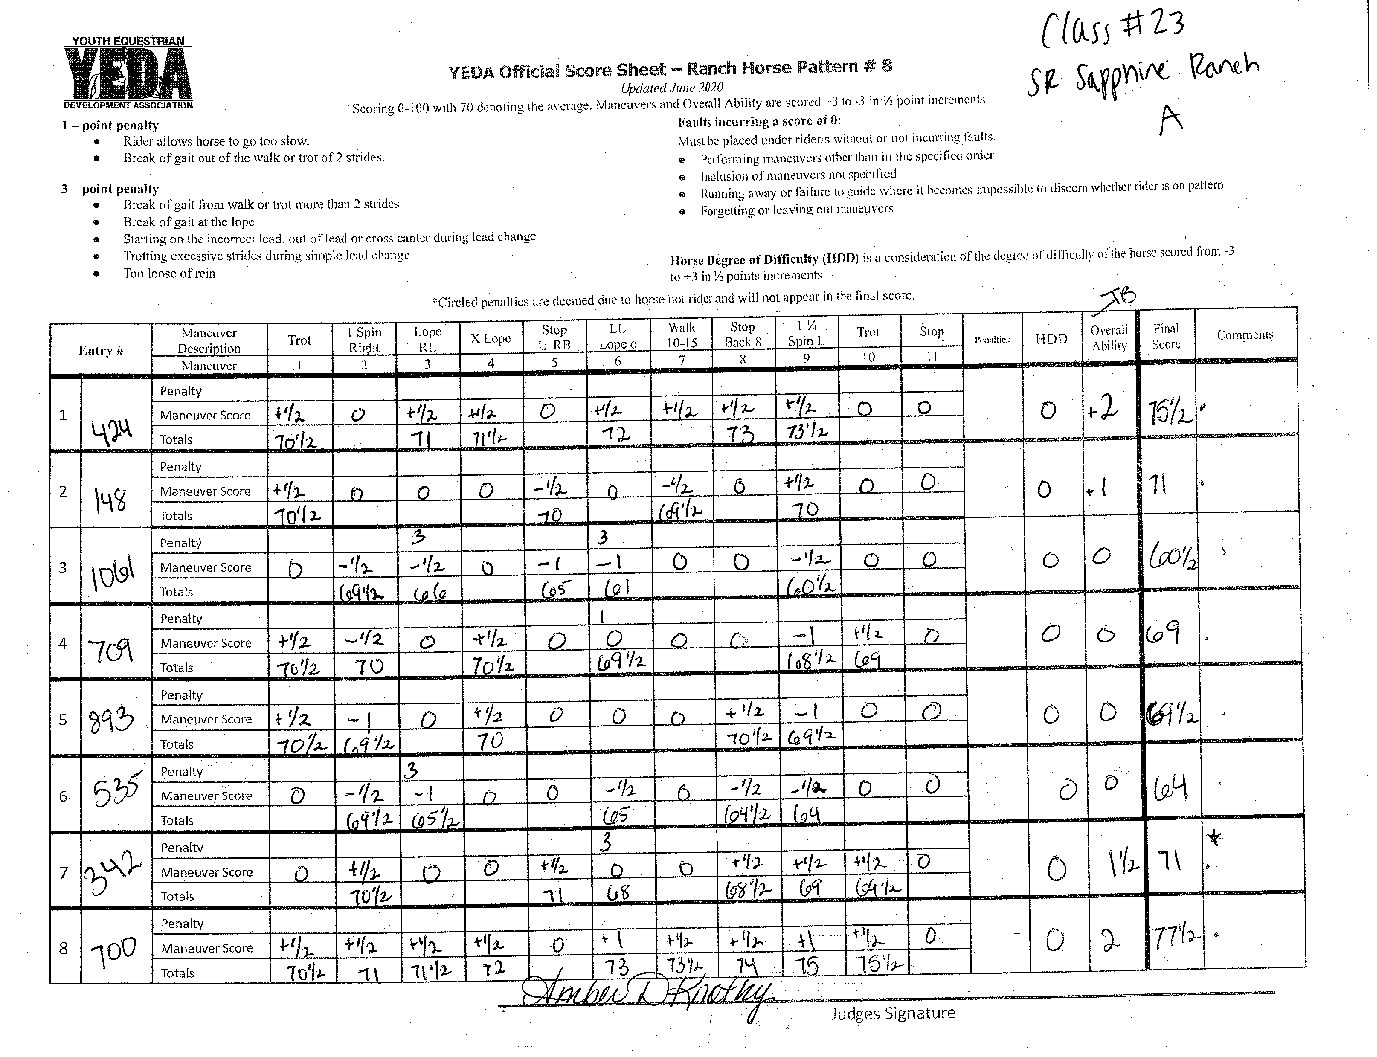 Class #23
SR Sapphire Ranch
A
YOUTH EQUESTRIAN
YEDA
DEVELOPMENT ASSOCIATION
YEDA Official Score Sheet – Ranch Horse Pattern # 8
Updated June 2020
Scoring 0-100 with 70 denoting the average. Maneuvers and Overall Ability are scored +3 to -3 in ½ point increments
1 – point penalty
• Rider allows horse to go too slow.
• Break of gait out of the walk or trot of 2 strides.
3 point penalty
• Break of gait from walk or trot more than 2 strides
• Break of gait at the lope
• Starting on the incorrect lead, out of lead or cross canter during lead change
• Trotting excessive strides during simple lead change
• Too loose of rein
Faults incurring a score of 0:
Must be placed under riders without or not incurring faults.
• Performing maneuvers other than in the specified order
• Inclusion of maneuvers not specified
• Running away or failure to guide where it becomes impossible to discern whether rider is on pattern
• Forgetting or leaving out maneuvers
Horse Degree of Difficulty (HDD) is a consideration of the degree of difficulty of the horse scored from -3
to +3 in ½ points increments
*Circled penalties are deemed due to horse not rider and will not appear in the final score.
JB
Entry # Maneuver Description Trot 1 Spin Right Lope RL X Lope Stop L RB LL Lope Walk 10-15 Stop Back 8 1 ¼ Spin L Trot Stop Penalties HDD Overall Ability Final Score Comments
Maneuver 1 2 3 4 5 6 7 8 9 10 11
1 424
Penalty
Maneuver Score +1/2 0 +1/2 +1/2 0 +1/2 +1/2 +1/2 +1/2 0 0 0 +2 75 1/2
Totals 70 1/2 71 71 1/2 72 73 73 1/2
2 148
Penalty
Maneuver Score +1/2 0 0 0 -1/2 0 -1/2 0 +1/2 0 0 0 +1 71
Totals 70 1/2 70 69 1/2 70
3 1061
Penalty 3 3
Maneuver Score 0 -1/2 -1/2 0 -1 -1 0 0 -1/2 0 0 0 0 60 1/2
Totals 69 1/2 66 65 61 60 1/2
4 709
Penalty 1
Maneuver Score +1/2 -1/2 0 +1/2 0 0 0 0 -1 +1/2 0 0 0 69
Totals 70 1/2 70 70 1/2 69 1/2 68 1/2 69
5 893
Penalty
Maneuver Score +1/2 -1 0 +1/2 0 0 0 +1/2 -1 0 0 0 0 69 1/2
Totals 70 1/2 69 1/2 70 70 1/2 69 1/2
6 535
Penalty 3
Maneuver Score 0 -1/2 -1 0 0 -1/2 0 -1/2 -1/2 0 0 0 0 64
Totals 69 1/2 65 1/2 65 64 1/2 64
7 342
Penalty 3 *
Maneuver Score 0 +1/2 0 0 +1/2 0 0 +1/2 +1/2 +1/2 0 0 1 1/2 71
Totals 70 1/2 71 68 68 1/2 69 69 1/2
8 700
Penalty
Maneuver Score +1/2 +1/2 +1/2 +1/2 0 +1 +1/2 +1/2 +1 +1/2 0 0 2 77 1/2
Totals 70 1/2 71 71 1/2 72 73 73 1/2 74 75 75 1/2
Amber D Knothy
Judges Signature